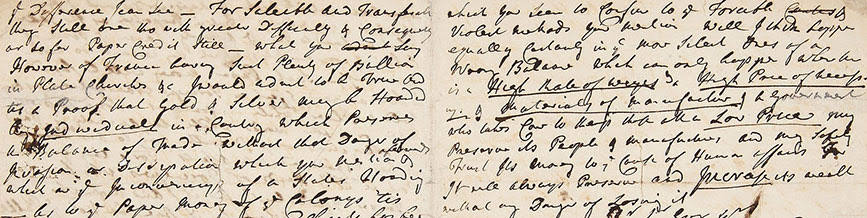 ye Difference I can see — For Selecting and Transport
they Still are tho with greater Difficulty & Consequence
as so far Paper Credit Still — what you say
However of France having Such Plenty of Bullion
in Plate Churches &c I would admit to be True But
tis a Proof that Gold & Silver may be Hoarded
by Individuals in a Country which Preserves
a Balance of Trade without that Danger of
Invasion or Dissipation which you mention
what are ye Inconveniency of a State's Hoarding
— as to ye Paper Money of ye Colonys tis
which you seem to Confine to ye Forcible &
Violent methods you mention will I think happen
equally Certainly in ye more Silent ones of a
Wrong Balance which can only happen when there
is a High Rate of wages & a High Price of
materials of manufacture & a Government
who takes Care to keep these at a Low Price may
Preserve its People & manufactures and may Safely
Trust its money to ye Course of Human affairs
It will always Preserve and Increase its wealth
without any Danger of Losing it